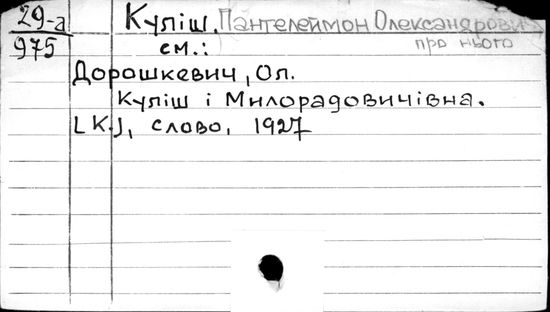 29-а Куліш, Пантелеймон Олександрович
975 см.: про нього
Дорошкевич, Ол.
Куліш і Милорадовичівна.
[К.], слово, 1927